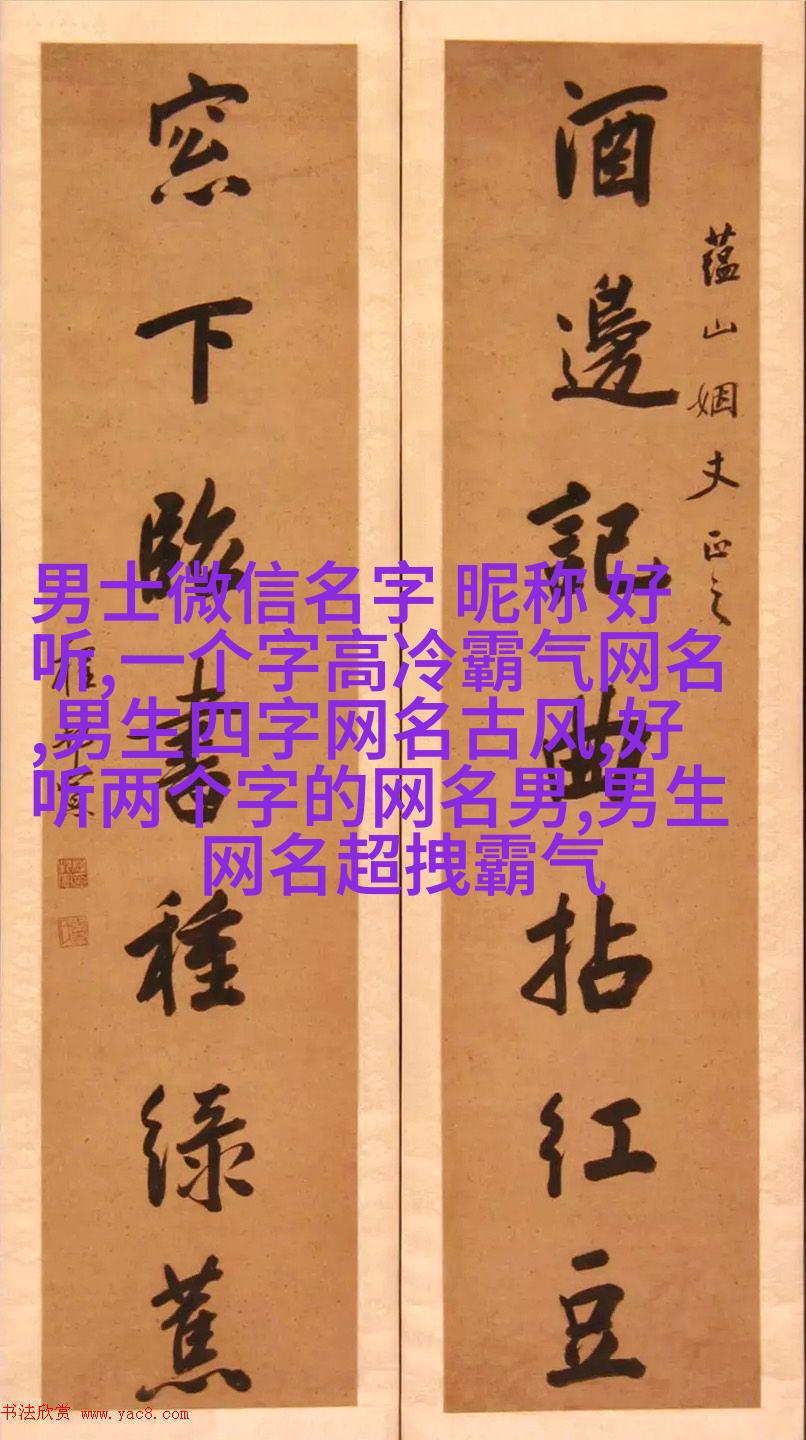 酒邊記曲拈紅豆
蘊山姻丈正之
窓下臨書種綠蕉
男士微信名字 昵称 好
听,一个字高冷霸气网名
,男生四字网名古风,好
听两个字的网名男,男生
网名超拽霸气
书法欣赏 www.yac8.com